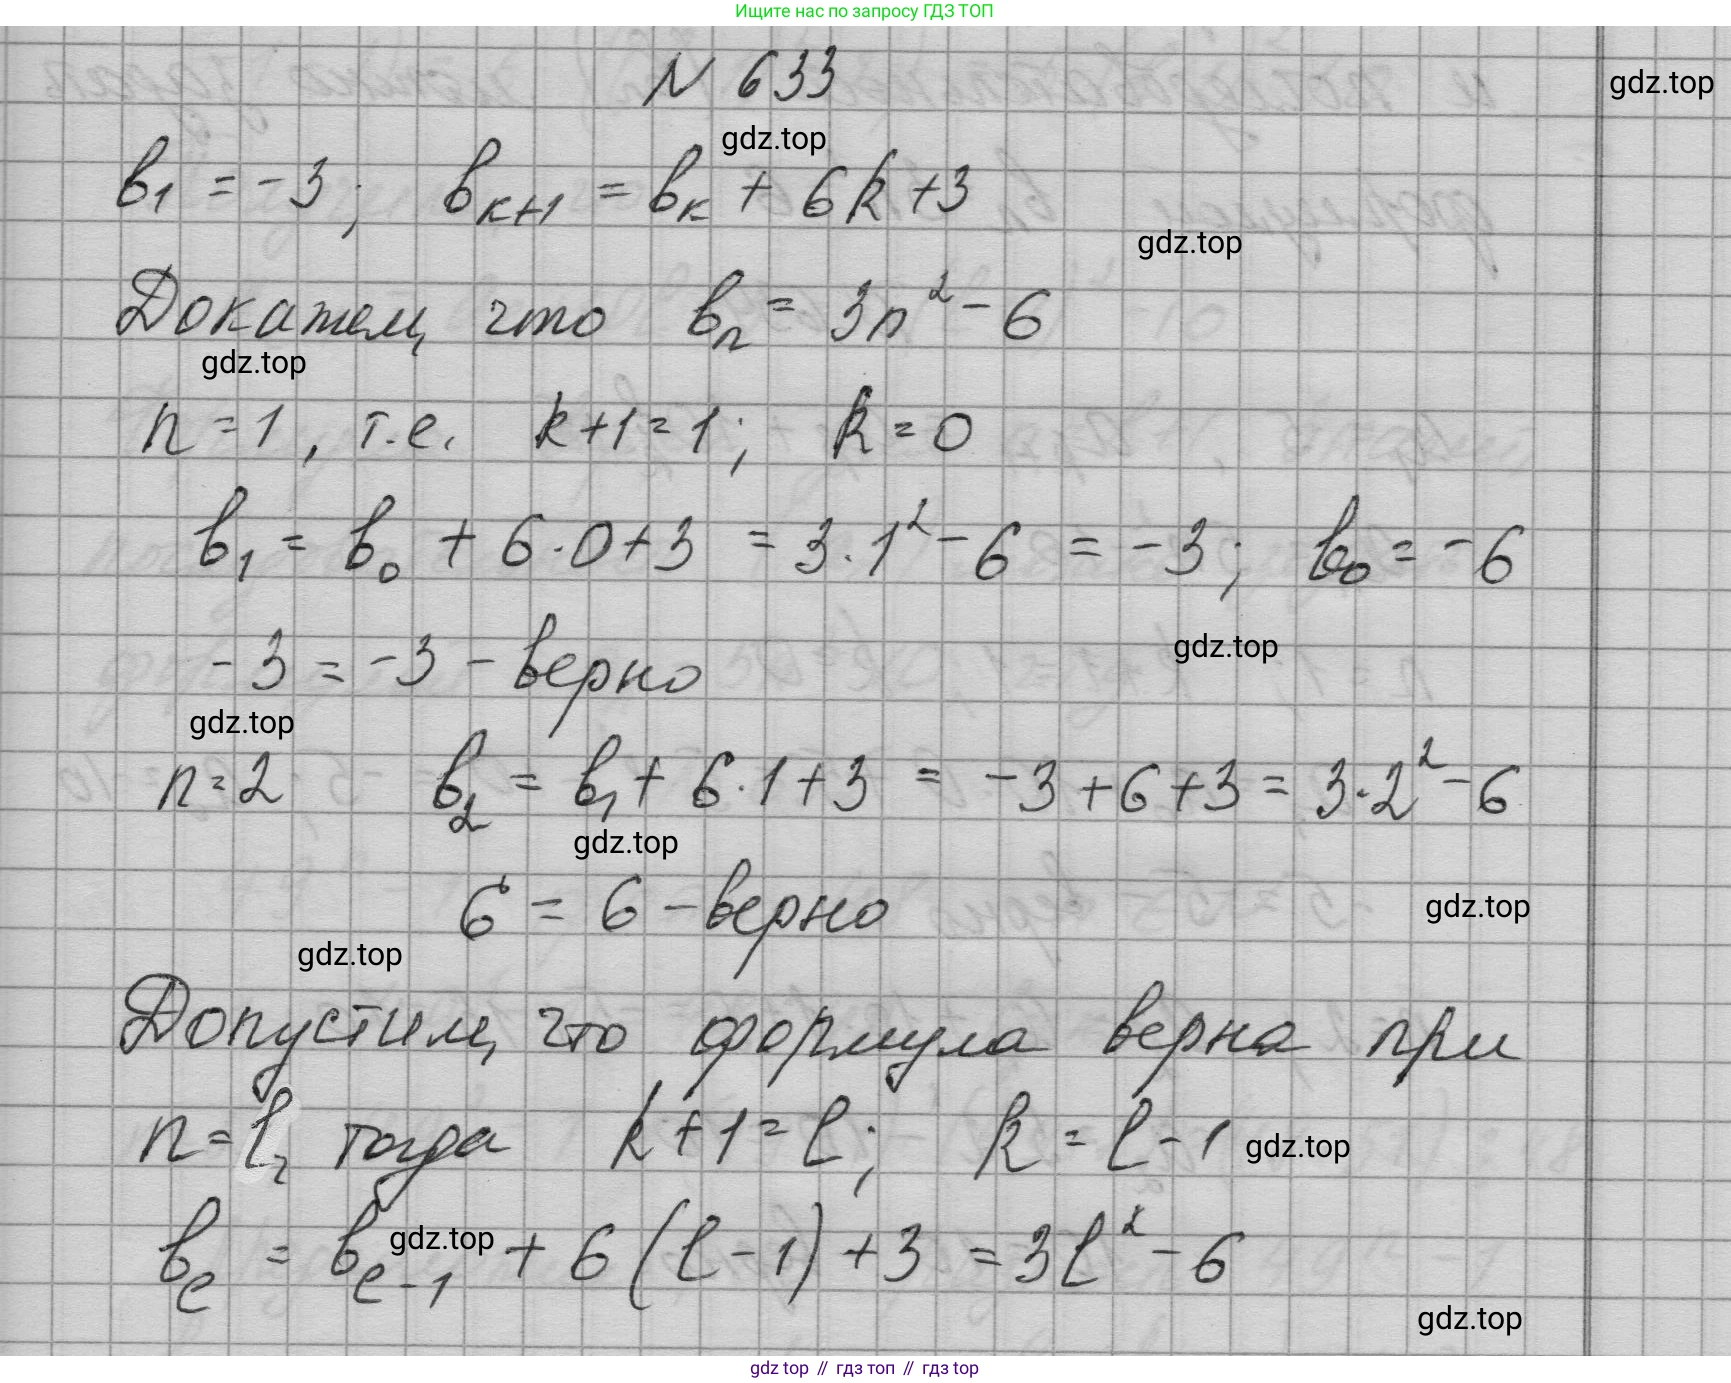 Ищите нас по запросу ГДЗ ТОП
N 633
gdz.top
gdz.top
в₁ = -3; вₖ₊₁ = вₖ + 6k + 3
gdz.top
Докажем, что вₙ = 3n² - 6
gdz.top
n = 1, т.е. k+1 = 1; k = 0
в₁ = в₀ + 6·0 + 3 = 3·1² - 6 = -3; в₀ = -6
gdz.top
-3 = -3 - верно
gdz.top
n = 2 в₂ = в₁ + 6·1 + 3 = -3 + 6 + 3 = 3·2² - 6
gdz.top
6 = 6 - верно
gdz.top
gdz.top
Допустим, что формула верна при
n = l, тогда k+1 = l; k = l - 1
gdz.top
вₗ = вₗ₋₁ + 6(l - 1) + 3 = 3l² - 6
gdz.top
gdz.top
gdz top // гдз топ // гдз top